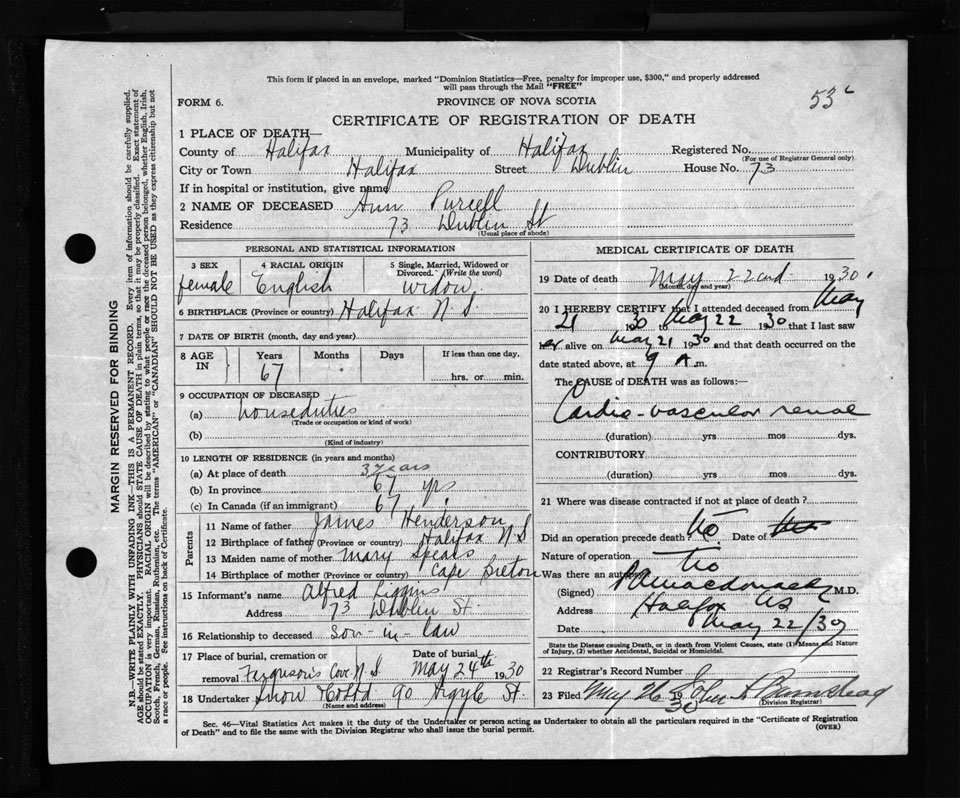 This form if placed in an envelope, marked "Dominion Statistics—Free, penalty for improper use, $300," and properly addressed
will pass through the Mail "FREE"
FORM 6.
PROVINCE OF NOVA SCOTIA
53
CERTIFICATE OF REGISTRATION OF DEATH
1 PLACE OF DEATH—
County of Halifax Municipality of Halifax Registered No.
(For use of Registrar General only)
City or Town Halifax Street Dublin House No. 73
If in hospital or institution, give name
2 NAME OF DECEASED Ann Purcell
Residence 73 Dublin St
(Usual place of abode)
PERSONAL AND STATISTICAL INFORMATION
3 SEX 4 RACIAL ORIGIN 5 Single, Married, Widowed or
Divorced. (Write the word)
female English widow
6 BIRTHPLACE (Province or country) Halifax N.S
7 DATE OF BIRTH (month, day and year)
8 AGE IN Years Months Days If less than one day,
67 hrs. or min.
9 OCCUPATION OF DECEASED
(a) houseduties
(Trade or occupation or kind of work)
(b)
(Kind of industry)
10 LENGTH OF RESIDENCE (in years and months)
(a) At place of death 3 years
(b) In province 67 yrs
(c) In Canada (if an immigrant) 67
Parents
11 Name of father James Henderson
12 Birthplace of father (Province or country) Halifax N S
13 Maiden name of mother Mary Spears
14 Birthplace of mother (Province or country) Cape Breton
15 Informant's name Alfred Liggins
Address 73 Dublin St.
16 Relationship to deceased son-in-law
17 Place of burial, cremation or Date of burial
removal Ferguson's Cov. N.S May 24th 1930
18 Undertaker Snow Co Ltd 90 Argyle St.
(Name and address)
MEDICAL CERTIFICATE OF DEATH
19 Date of death May 22nd 1930.
(Month, day and year)
20 I HEREBY CERTIFY that I attended deceased from May
21 1930 May 22 1930 that I last saw
her alive on May 21 1930 and that death occurred on the
date stated above, at 9 A.m.
The CAUSE OF DEATH was as follows:—
Cardio-vascular renal
(duration) yrs mos dys.
CONTRIBUTORY
(duration) yrs mos dys.
21 Where was disease contracted if not at place of death?
Did an operation precede death No. Date of
Nature of operation
Was there an autopsy No
(Signed) M.D.
Address Halifax NS
Date May 22/30
State the Disease causing Death, or in death from Violent Causes, state (1) Means and Nature
of Injury, (2) whether Accidental, Suicidal or Homicidal.
22 Registrar's Record Number
23 Filed May 26 1930
(Division Registrar)
Sec. 46—Vital Statistics Act makes it the duty of the Undertaker or person acting as Undertaker to obtain all the particulars required in the "Certificate of Registration
of Death" and to file the same with the Division Registrar who shall issue the burial permit.
(OVER)
MARGIN RESERVED FOR BINDING
N.B.—WRITE PLAINLY WITH UNFADING INK—THIS IS A PERMANENT RECORD. Every item of information should be carefully supplied.
AGE should be stated EXACTLY. PHYSICIANS should STATE CAUSE OF DEATH in plain terms, so that it may be properly classified. Exact statement of
OCCUPATION is very important. RACIAL ORIGIN will be described by stating to what people or race the deceased person belonged, whether English, Irish,
Scotch, French, German, Russian, Ruthenian, etc. The terms "AMERICAN" or "CANADIAN" SHOULD NOT BE USED as they express citizenship but not
a race or people. See instructions on back of Certificate.